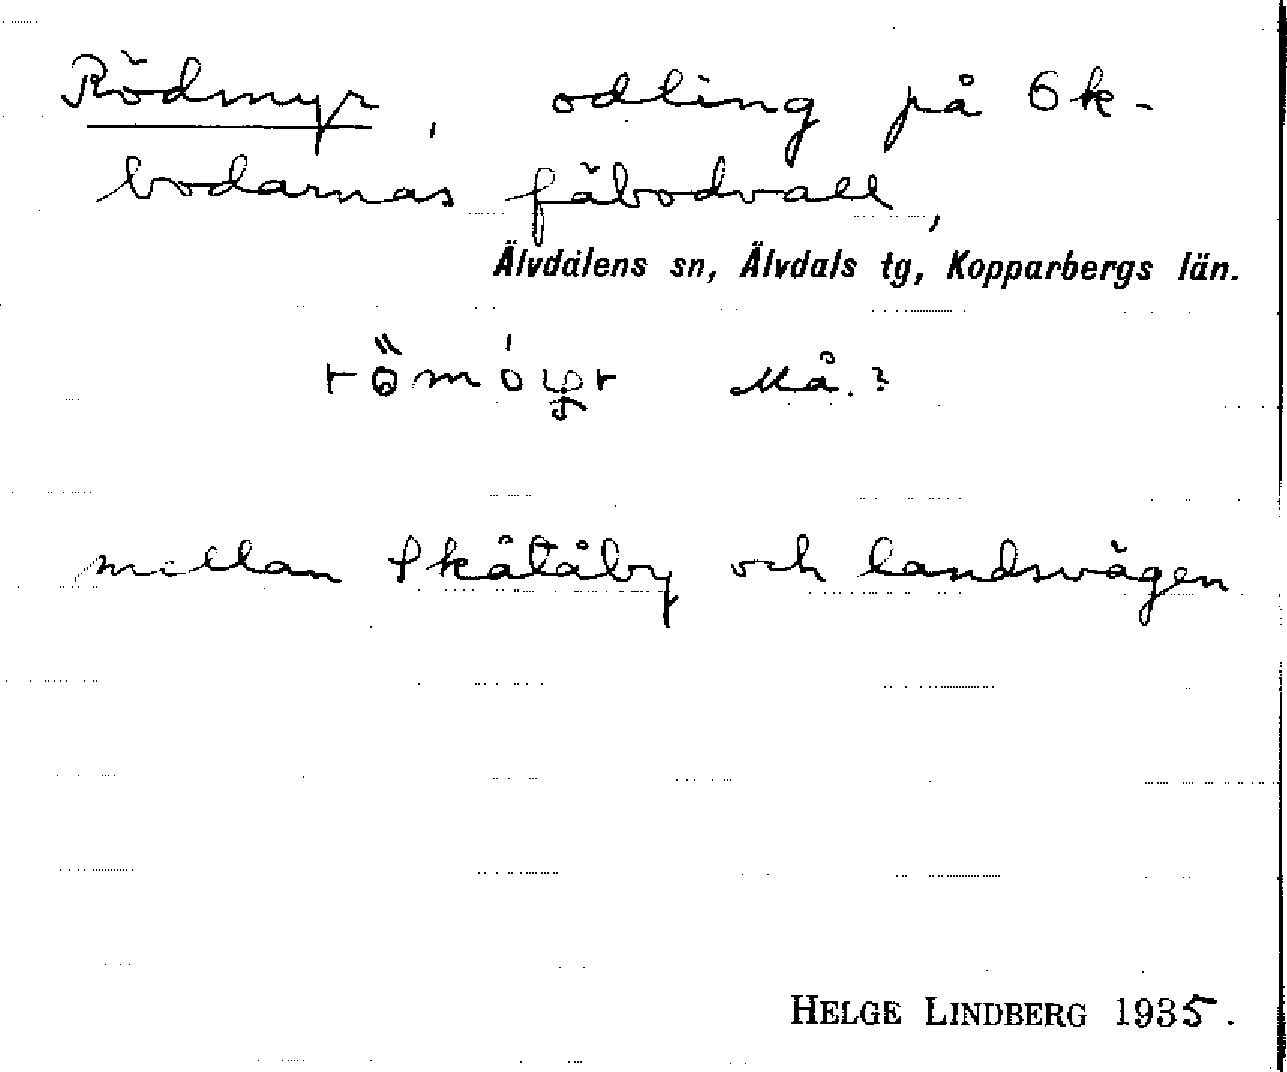 Rödmyr, odling på Ök-
bodarnas fäbodvall,
Älvdalens sn, Älvdals tg, Kopparbergs län.
Må.?
mellan Skåtåby och landsvägen
HELGE LINDBERG 1935.